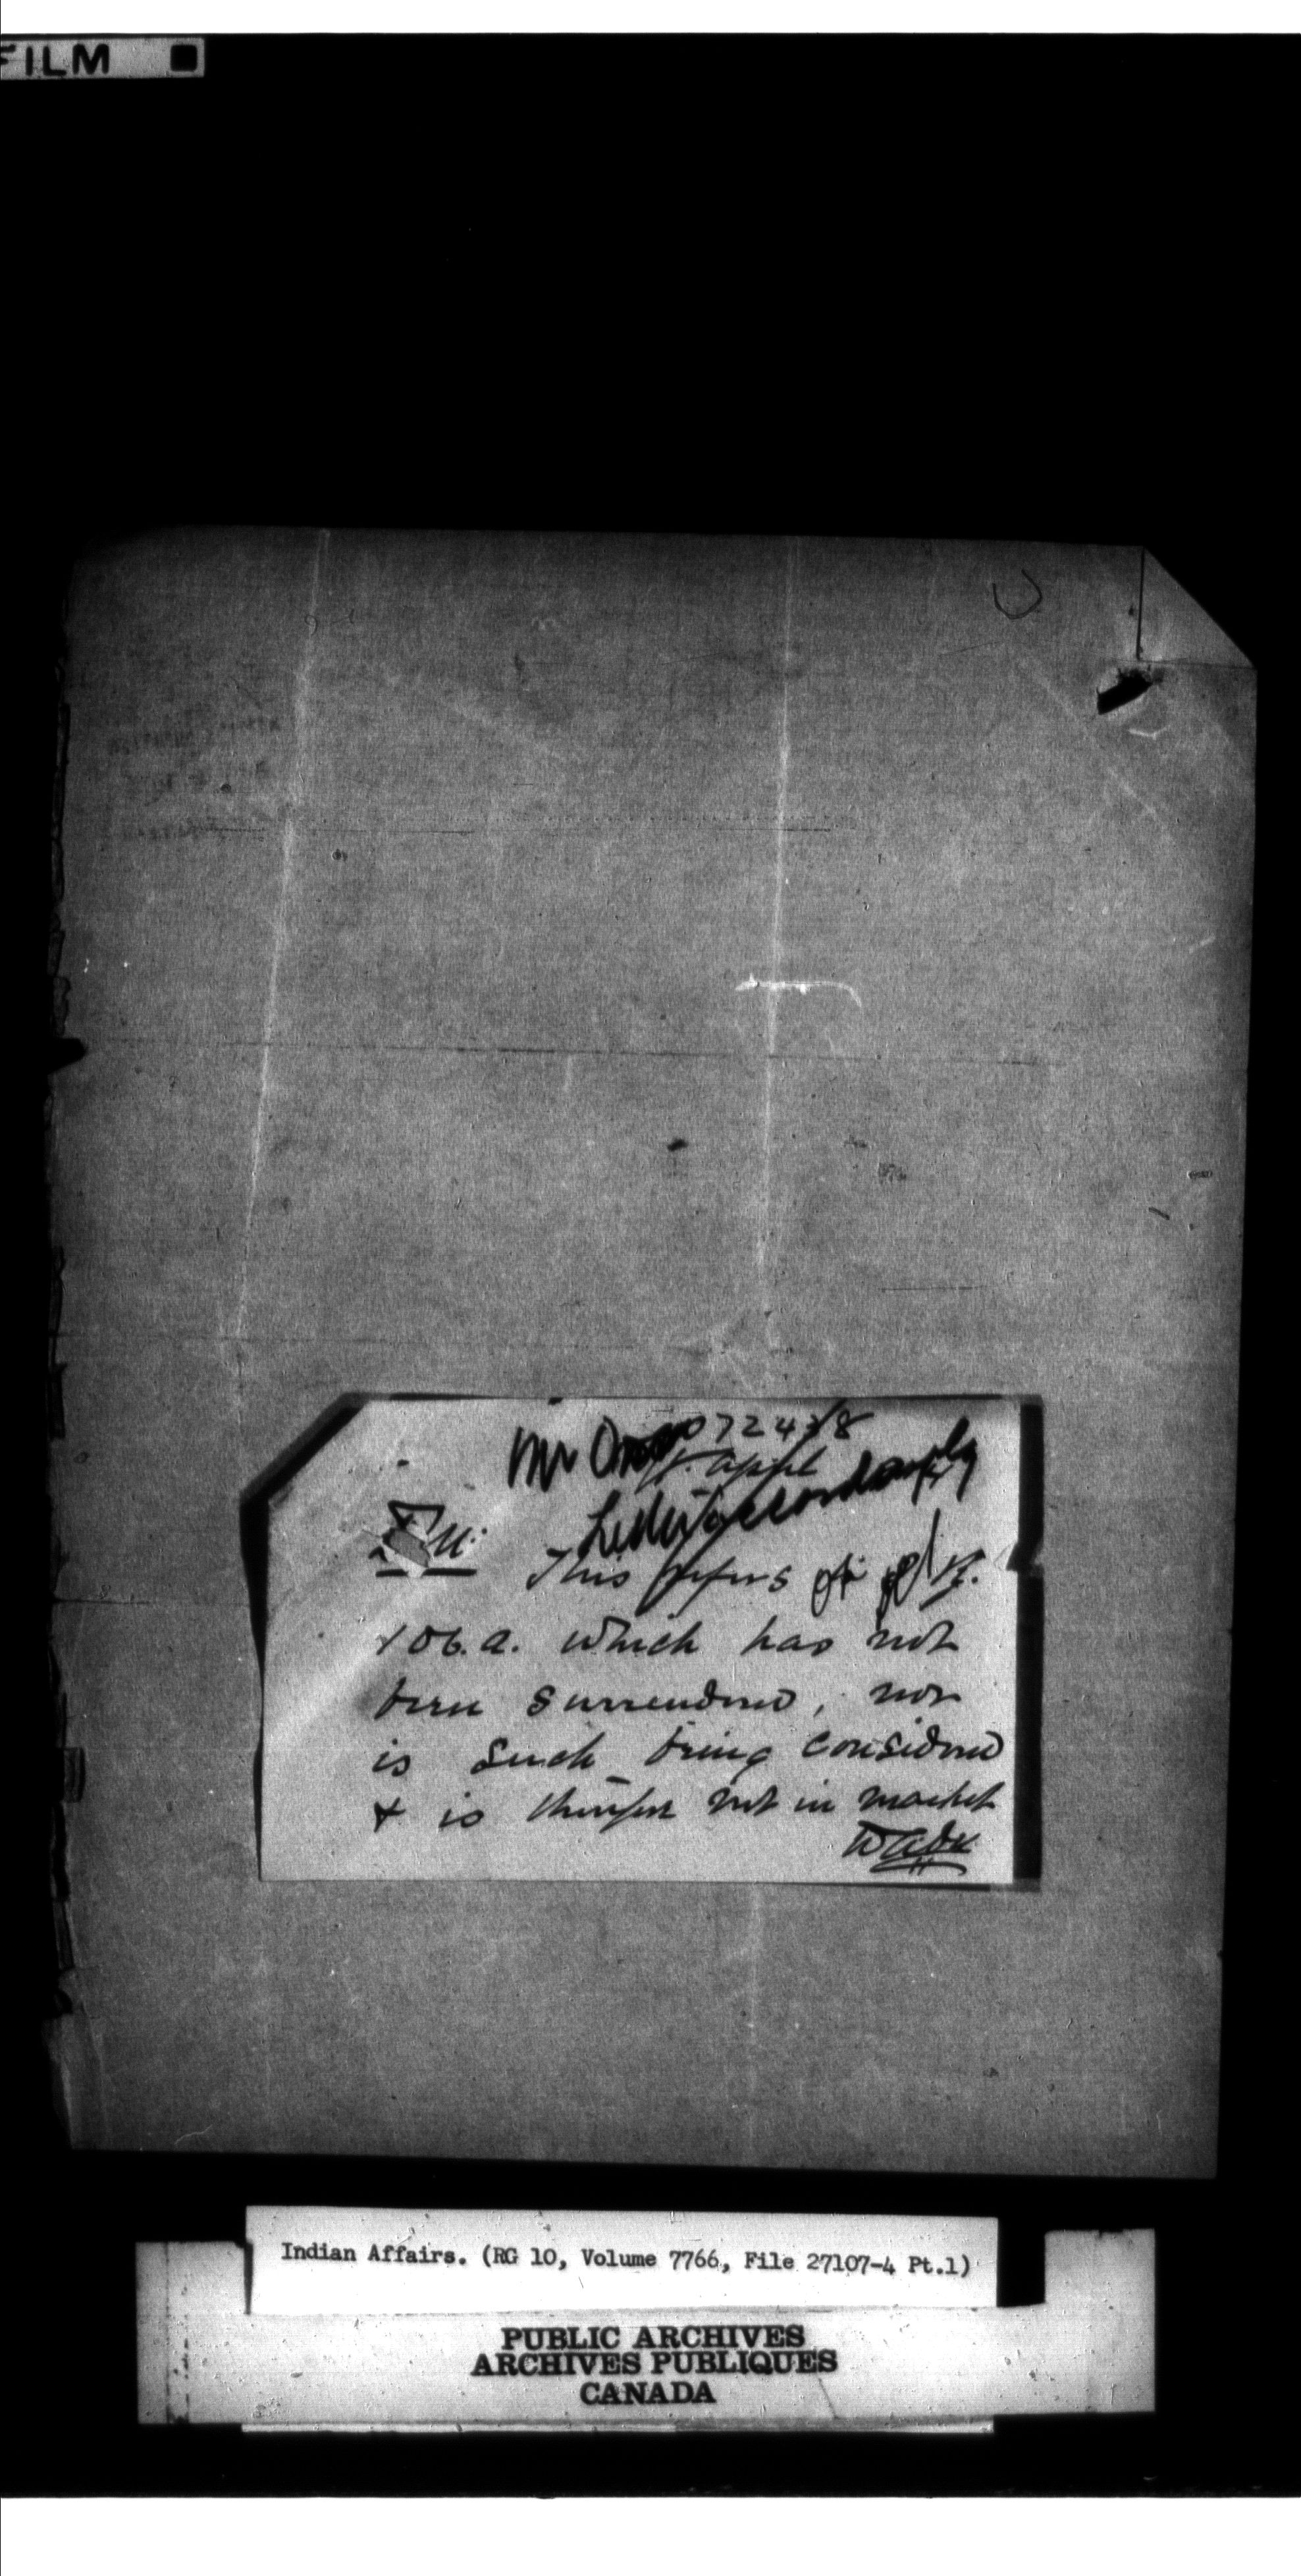 FILM
Mr
72438
Letter accordingly
This refers
106.a. which has not
been surrendered, nor
is such being considered
& is therefore not in market
Indian Affairs. (RG 10, Volume 7766, File 27107-4 Pt.1)
PUBLIC ARCHIVES
ARCHIVES PUBLIQUES
CANADA